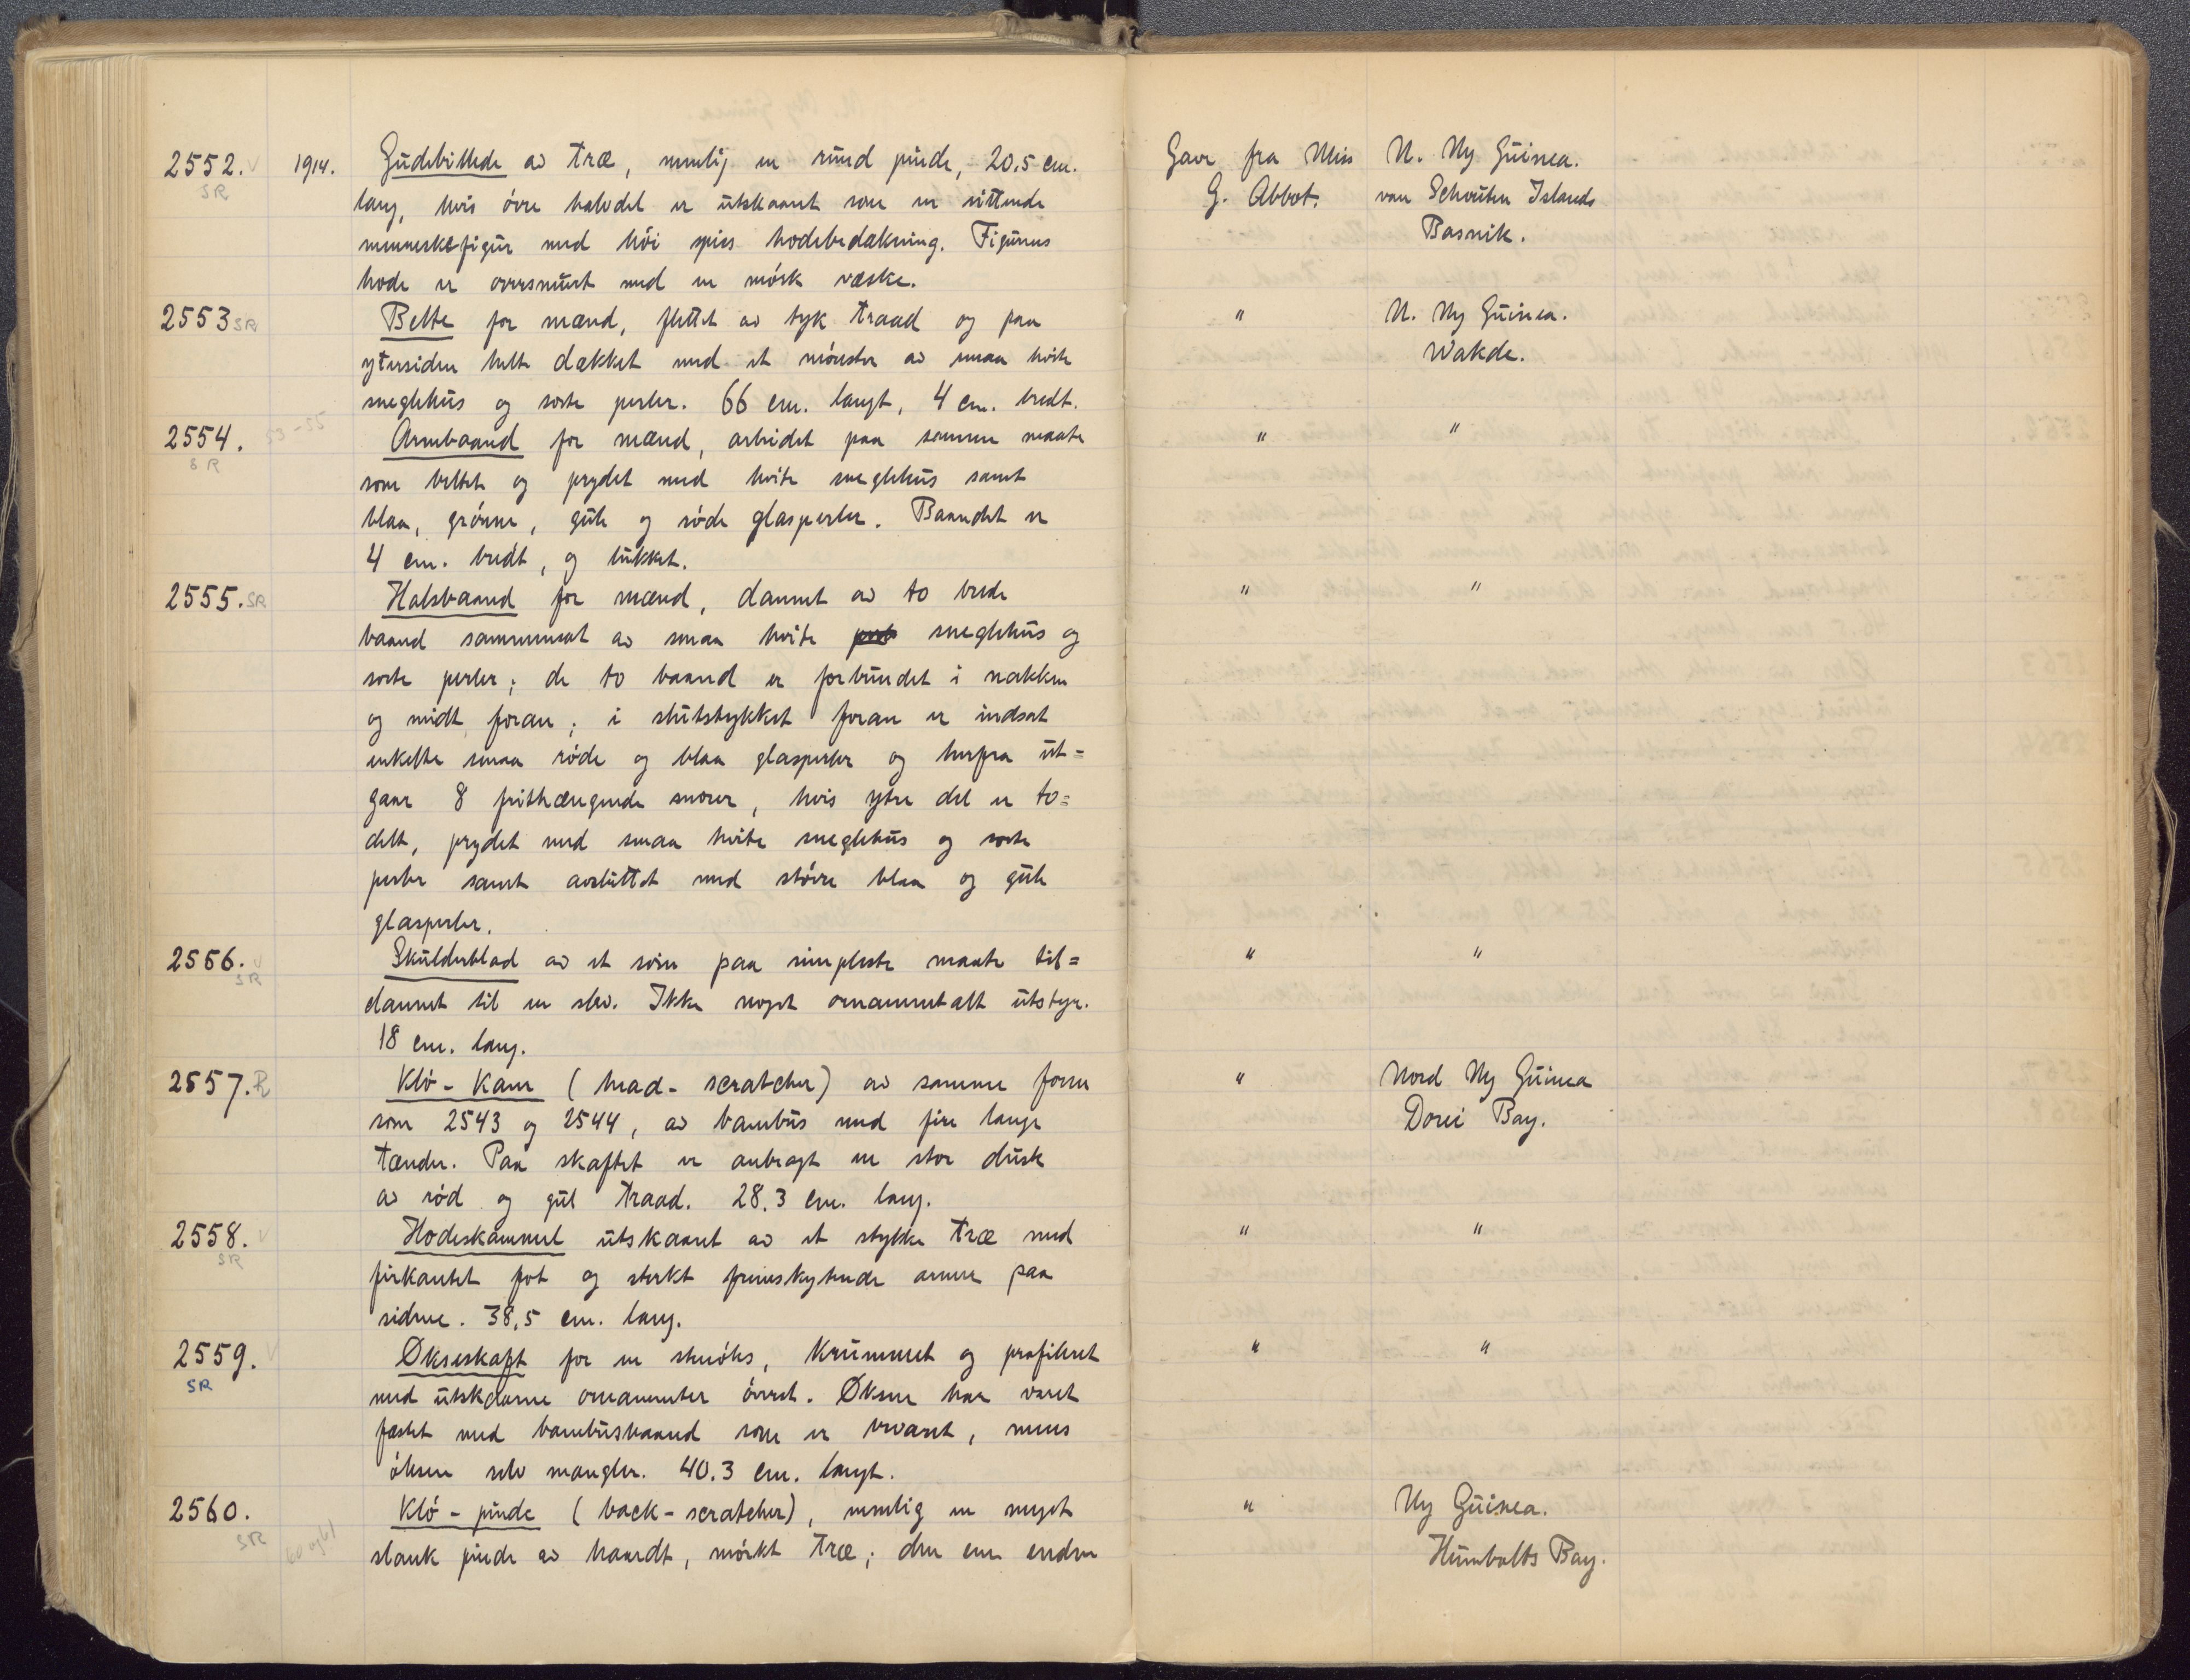 2552. 1914. Gudebillede av træ, nemlig en rund pinde, 20.5 cm. Gave fra Miss N. Ny Guinea.
SR lang, hvis óvre halvdel er utskaaret som en sittende G. Abbot. van Schouten Islands
menneskefigur med hói spids hodebedækning. Figurens Bosnik.
hode er oversmurt med en mórk væske.
2553 SR Belte for mænd, flettet av tyk traad og paa " N. Ny Guinea.
ytersiden helt dækket med et mónster av smaa hvite Wakde.
sneglehus og sorte perler. 66 cm. langt, 4 cm. bredt.
2554. 53-55 Armbaand for mænd, arbeidet paa samme maate " "
SR som beltet og prydet med hvite sneglehus samt
blaa, grónne, gule og róde glasperler. Baandet er
4 cm. bredt, og lukket.
2555. SR Halsbaand for mænd, dannet av to brede " "
baand sammensat av smaa hvite sneglehus og
sorte perler; de to baand er forbundet i nakken
og midt foran; i slutstykket foran er indsat
enkelte smaa róde og blaa glasperler og herfra ut=
gaar 8 frithængende snorer, hvis ytre del er to=
delt, prydet med smaa hvite sneglehus og sorte
perler samt avsluttet med stórre blaa og gule
glasperler.
2556. Skulderblad av et svin paa simpleste maate til= " "
SR dannet til en ske. Ikke noget ornamentalt utstyr.
18 cm. lang.
2557. R Kló-Kam (head-scratcher) av samme form " Nord Ny Guinea
som 2543 og 2544, av bambus med fire lange Dorei Bay.
tænder. Paa skaftet er anbragt en stor dusk
av ród og gul traad. 28.3 cm. lang.
2558. Hodeskammel utskaaret av et stykke træ med " "
SR firkantet fot og sterkt fremskytende arme paa
siderne. 38,5 cm. lang.
2559. Økseskaft for en stenóks, krummet og profileret " "
SR med utskaarne ornamenter óverst. Øksen har været
fæstet med bambusbaand som er bevaret, mens
óksen selv mangler. 40.3 cm. langt.
2560. Kló-pinde (back-scratcher), nemlig en meget " Ny Guinea.
SR 60 og 61 slank pinde av haardt, mórkt træ; den ene enden Humbolts Bay.